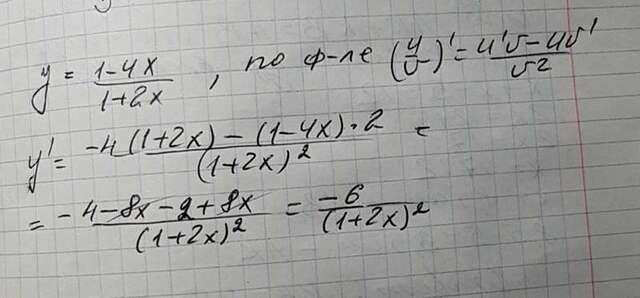 y = (1-4x)/(1+2x) , по ф-ле (u/v)' = (u'v - uv')/v²
y' = (-4(1+2x) - (1-4x)·2)/(1+2x)² =
= (-4-8x-2+8x)/(1+2x)² = -6/(1+2x)²